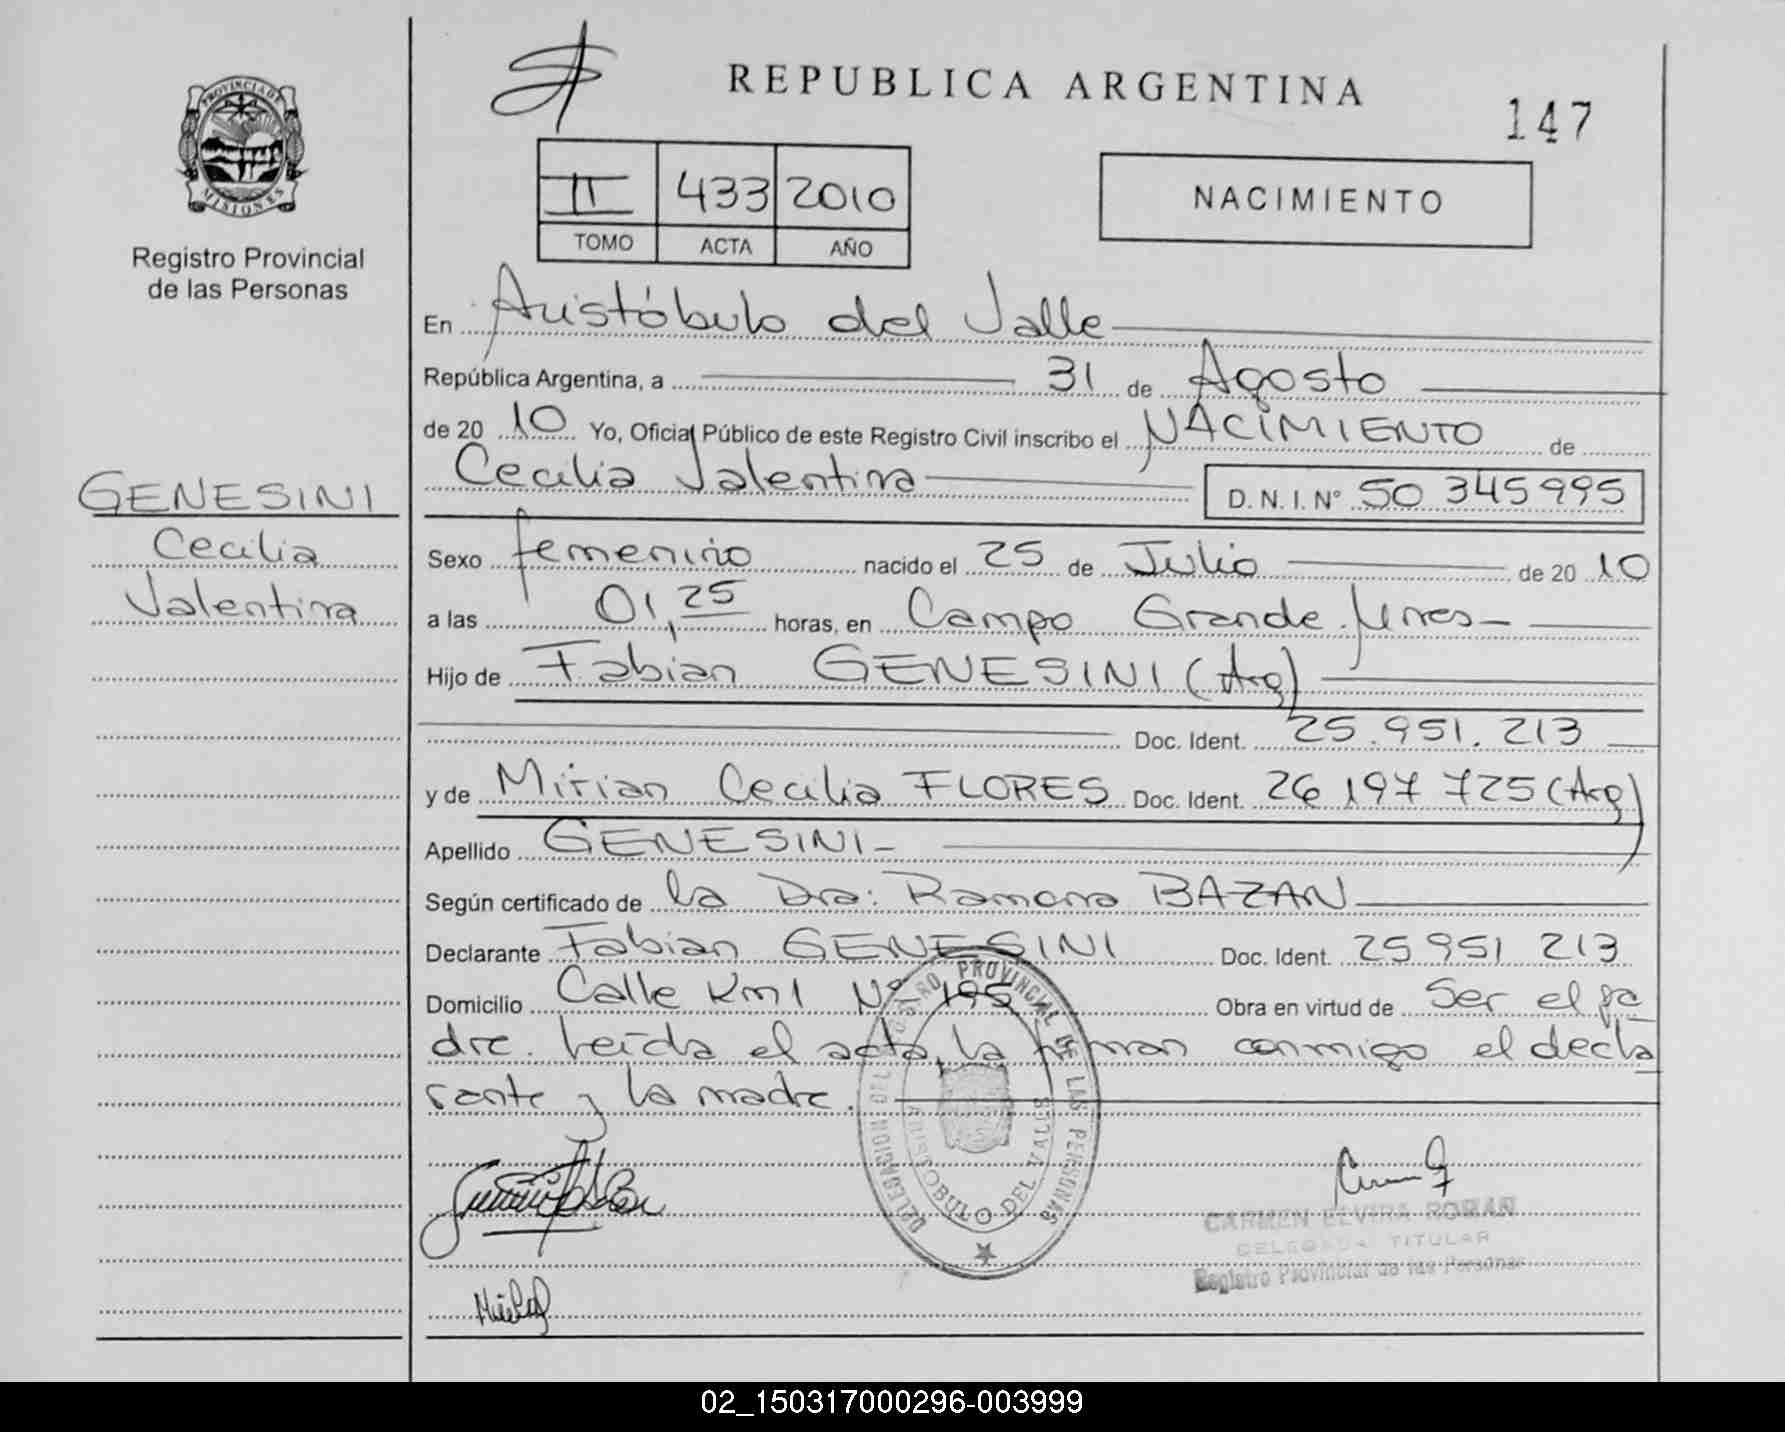 REPUBLICA ARGENTINA
147
PROVINCIA DE
MISIONES
Registro Provincial
de las Personas
II 433 2010
TOMO ACTA AÑO
NACIMIENTO
En Aristóbulo del Valle
República Argentina, a 31 de Agosto
de 20 10 Yo, Oficial Público de este Registro Civil inscribo el NACIMIENTO de
Cecilia Valentina D.N.I. N° 50 345995
GENESINI
Cecilia
Valentina
Sexo femenino nacido el 25 de Julio de 20 10
a las 01,25 horas, en Campo Grande. Mnes-
Hijo de Fabian GENESINI (Arg)
Doc. Ident. 25.951.213
y de Mirian Cecilia FLORES Doc. Ident. 26 197 725 (Arg)
Apellido GENESINI-
Según certificado de la Dra: Ramona BAZAN
Declarante Fabian GENESINI Doc. Ident. 25 951 213
Domicilio Calle Km1 N° 195 Obra en virtud de Ser el pa
dre. Leída el acta, la firman conmigo el decla
rante y la madre.
DELEGACION DEL REGISTRO PROVINCIAL DE LAS PERSONAS
ARISTOBULO DEL VALLE
CARMEN ELVIRA ROMAN
DELEGADA TITULAR
Registro Provincial de las Personas
02_150317000296-003999